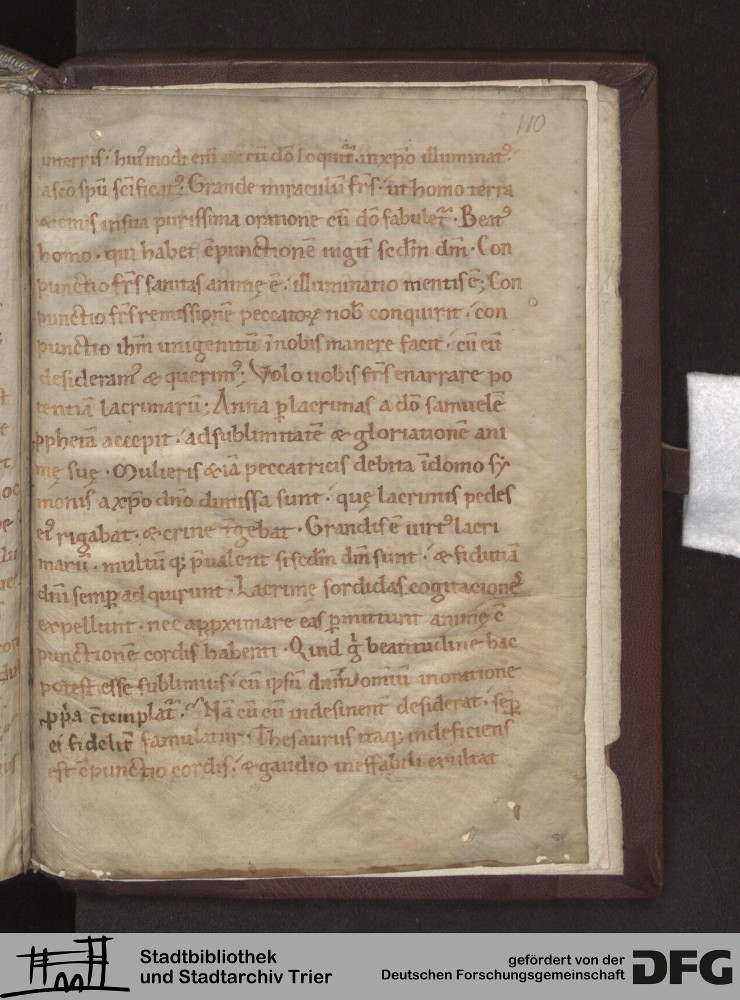 110
interris · hui⁹modi eni cū dō loquit᷑ · in xp̄o illuminat⁹ ·
a sc̄o spū sc̄ificat⁹ · Grande miraculū fr̄s · ut homo terra
& cinis in sua purissima oratione cū dō fabulet᷑ · Beat⁹
homo · qui habet c̄punctionē iugit̄ scdm̄ dm̄ · Con
punctio fr̄s sanitas animę ē · illuminatio mentis ē; Con
punctio fr̄s remissionē peccatoꝝ nob̄ conquirit · con
punctio ihm̄ unigenitū ī nobis manere facit · cū eū
desideram⁹ & querim⁹; Volo uobis fr̄s enarrare po
tentiā lacrimarū · Anna p̱ lacrimas a dō samuelē
ꝓphetā accepit · ad sublimitatē & gloriationē ani
mę suę · Mulieris & iā peccatricis debita ī domo sy
monis a xp̄o dn̄o dimissa sunt · quę lacrimis pedes
ei⁹ rigabat · & crine t̄gebat · Grandis ē uirt⁹ lacri
marū · multū q; p̄ualent si scdm̄ dm̄ sunt · & fidutiā
dn̄i semp̱ adquirunt · Lacrime sordidas cogitaciones
expellunt · nec apꝓximare eas p̱mittunt animę c̄
punctionē cordis habenti · Quid g̊ beatitudine hac
potest esse sublimius · cū ipsū dn̄m omiū in oratione
ꝓp̱a c̄templat᷑ · Nā cū eū indesinent̄ desiderat · sep̱
ei fidelit̄ famulatur · Thesaurus itaq; indeficiens
est c̄punctio cordis · & gaudio ineffabili exultat
Stadtbibliothek
und Stadtarchiv Trier
gefördert von der
Deutschen Forschungsgemeinschaft
DFG